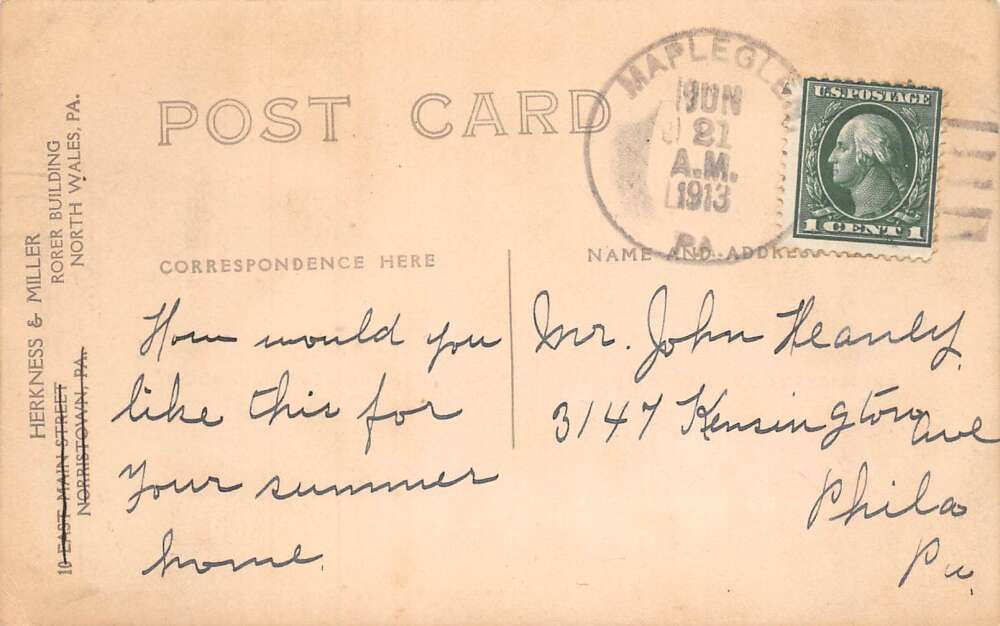 POST CARD
MAPLEGLEN
JUN
21
A.M.
1913
PA.
U.S. POSTAGE
1 CENT 1
HERKNESS & MILLER
RORER BUILDING
NORTH WALES, PA.
10 EAST MAIN STREET
NORRISTOWN, PA.
CORRESPONDENCE HERE
NAME AND ADDRESS
How would you
like this for
your summer
home.
Mr. John Heanly.
3147 Kensington Ave
Phila
Pa.